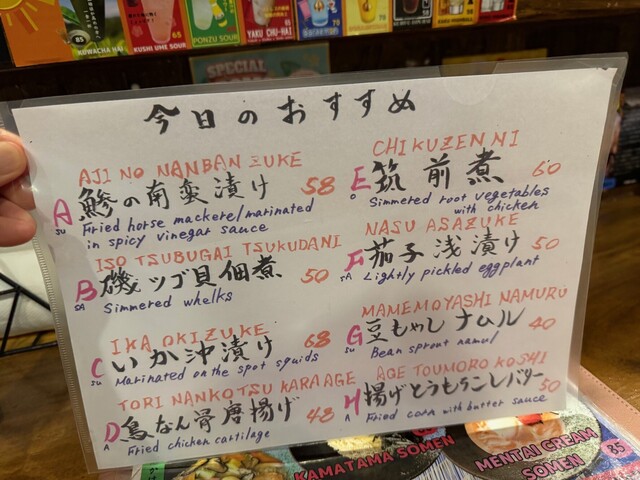 KUWACHA HAI
KUSHI UME SOUR
65
PONZU SOUR
YAKU CHU-HAI
65
70
SPECIAL
今日のおすすめ
AJI NO NANBAN ZUKE
A 鯵の南蛮漬け 58
SU
Fried horse mackerel marinated
in spicy vinegar sauce
ISO TSUBUGAI TSUKUDANI
B 磯ツブ貝佃煮 50
SA
Simmered whelks
IKA OKIZUKE
C いか沖漬け 68
SU
Marinated on the spot squids
TORI NANKOTSU KARAAGE
D 鳥なん骨唐揚げ 48
A
Fried chicken cartilage
CHIKUZEN NI
E 筑前煮 60
O
Simmered root vegetables
with chicken
NASU ASAZUKE
F 茄子浅漬け 50
SA
Lightly pickled eggplant
MAMEMOYASHI NAMURU
G 豆もやしナムル 40
SU
Bean sprout namul
AGE TOUMOROKOSHI
H 揚げとうもろこしバター 50
A
Fried corn with butter sauce
KAMATAMA SOMEN
MENTAI CREAM
SOMEN
85